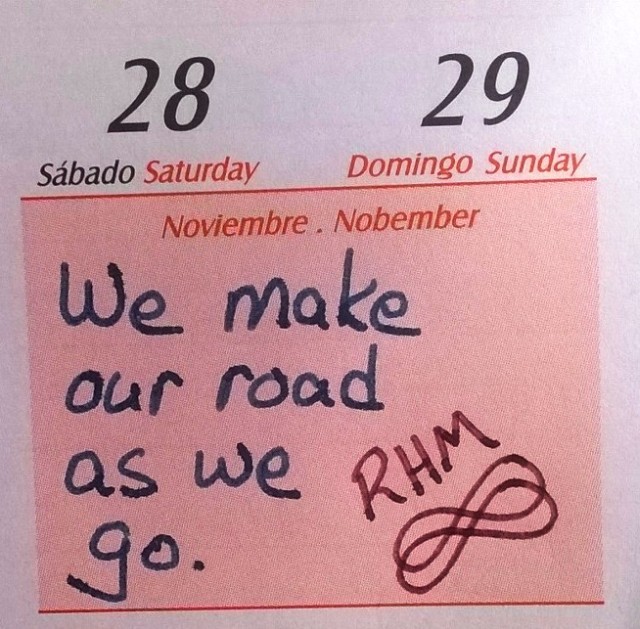 28 29
Sábado Saturday Domingo Sunday
Noviembre . Nobember
We make
our road
as we
go.
RHM